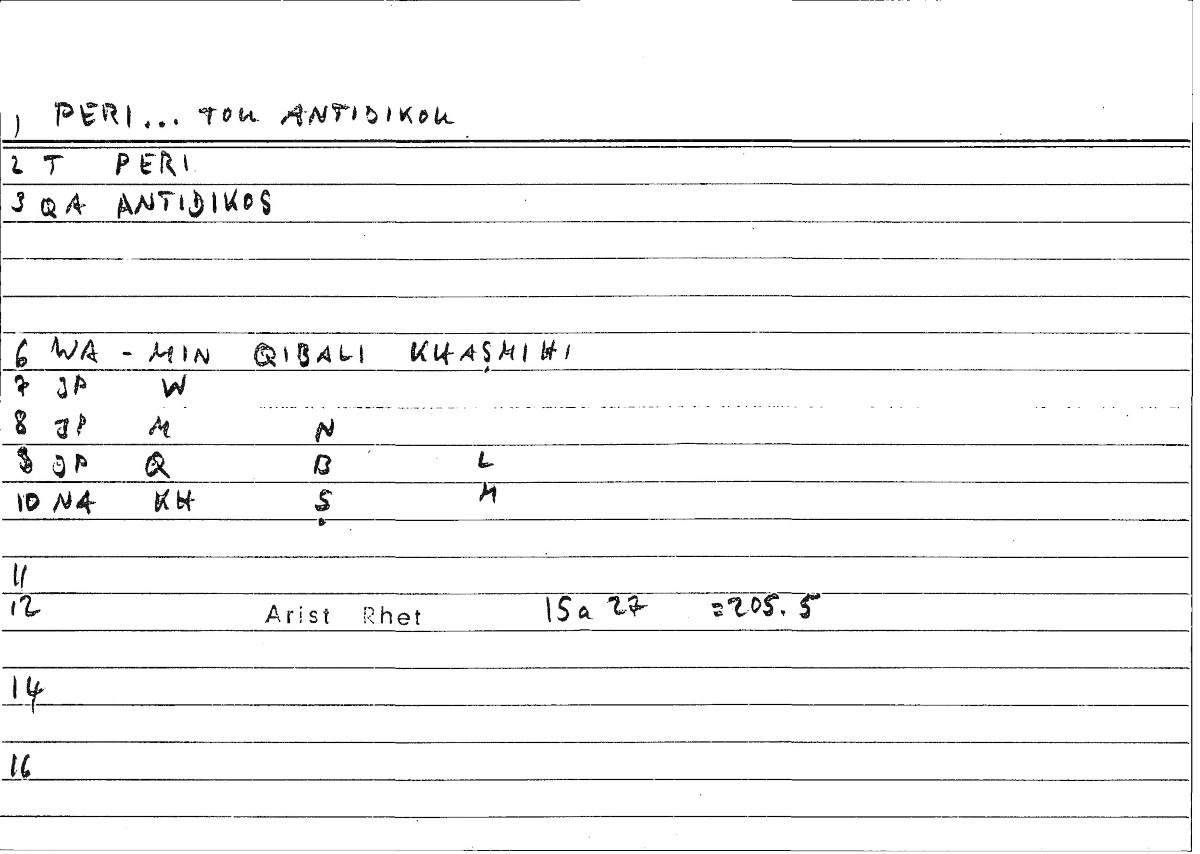 1 PERI... TOU ANTIDIKOU
2 T PERI
3 QA ANTIDIKOS
6 WA - MIN QIBALI KHAṢMIHI
7 JP W
8 JP M N
9 JP Q B L
10 NA KH Ṣ M
11
12 Arist Rhet 15a 27 =205.5
14
16